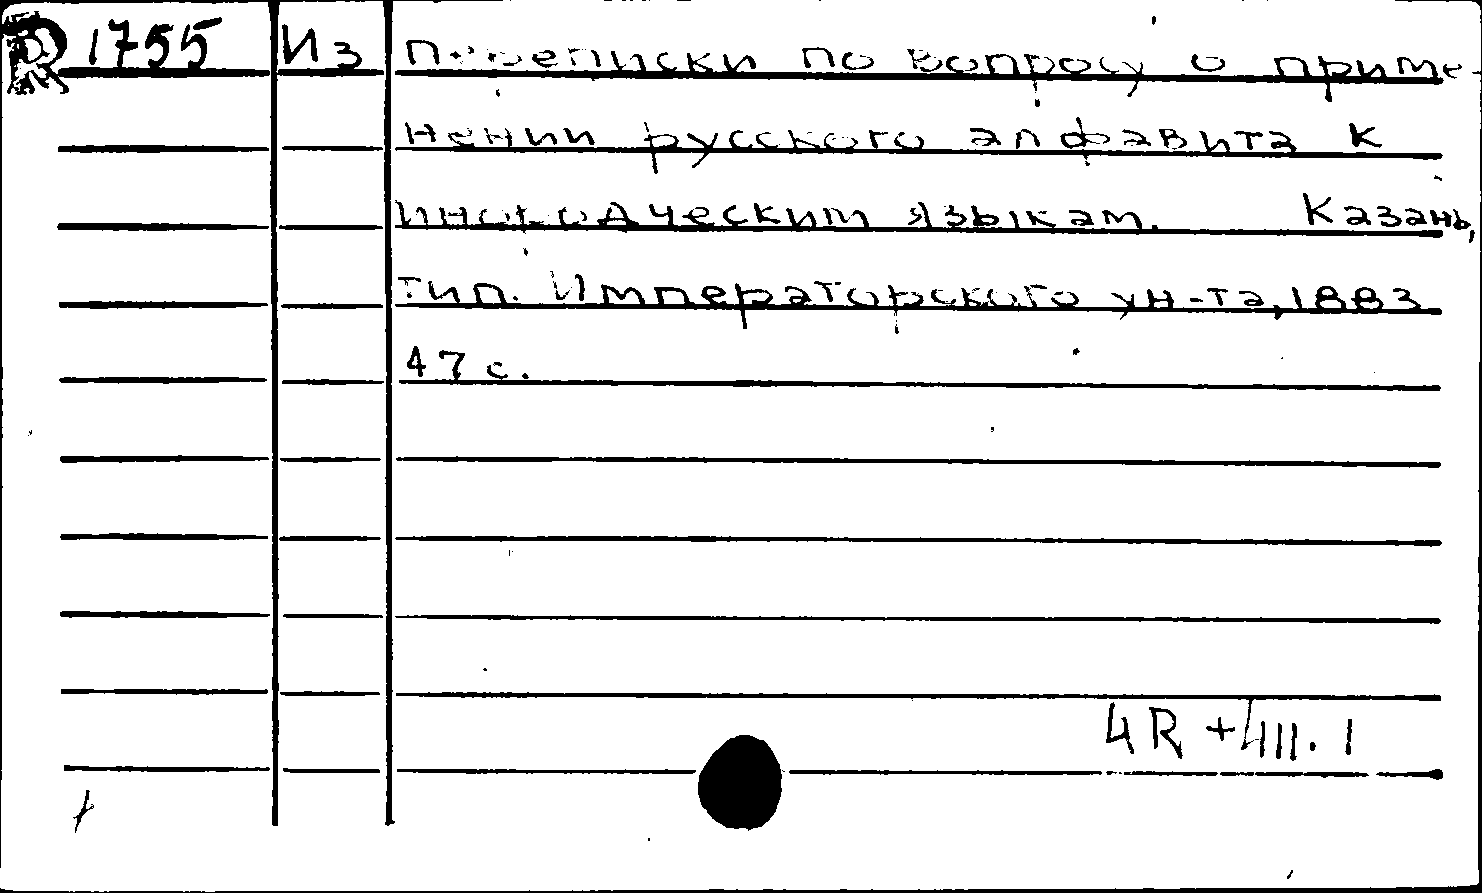 1755 Из переписки по вопросу о приме-
нении русского алфавита к
инородческим языкам. Казань,
тип. Императорского ун-та, 1883
47 с.
4R + 411. 1